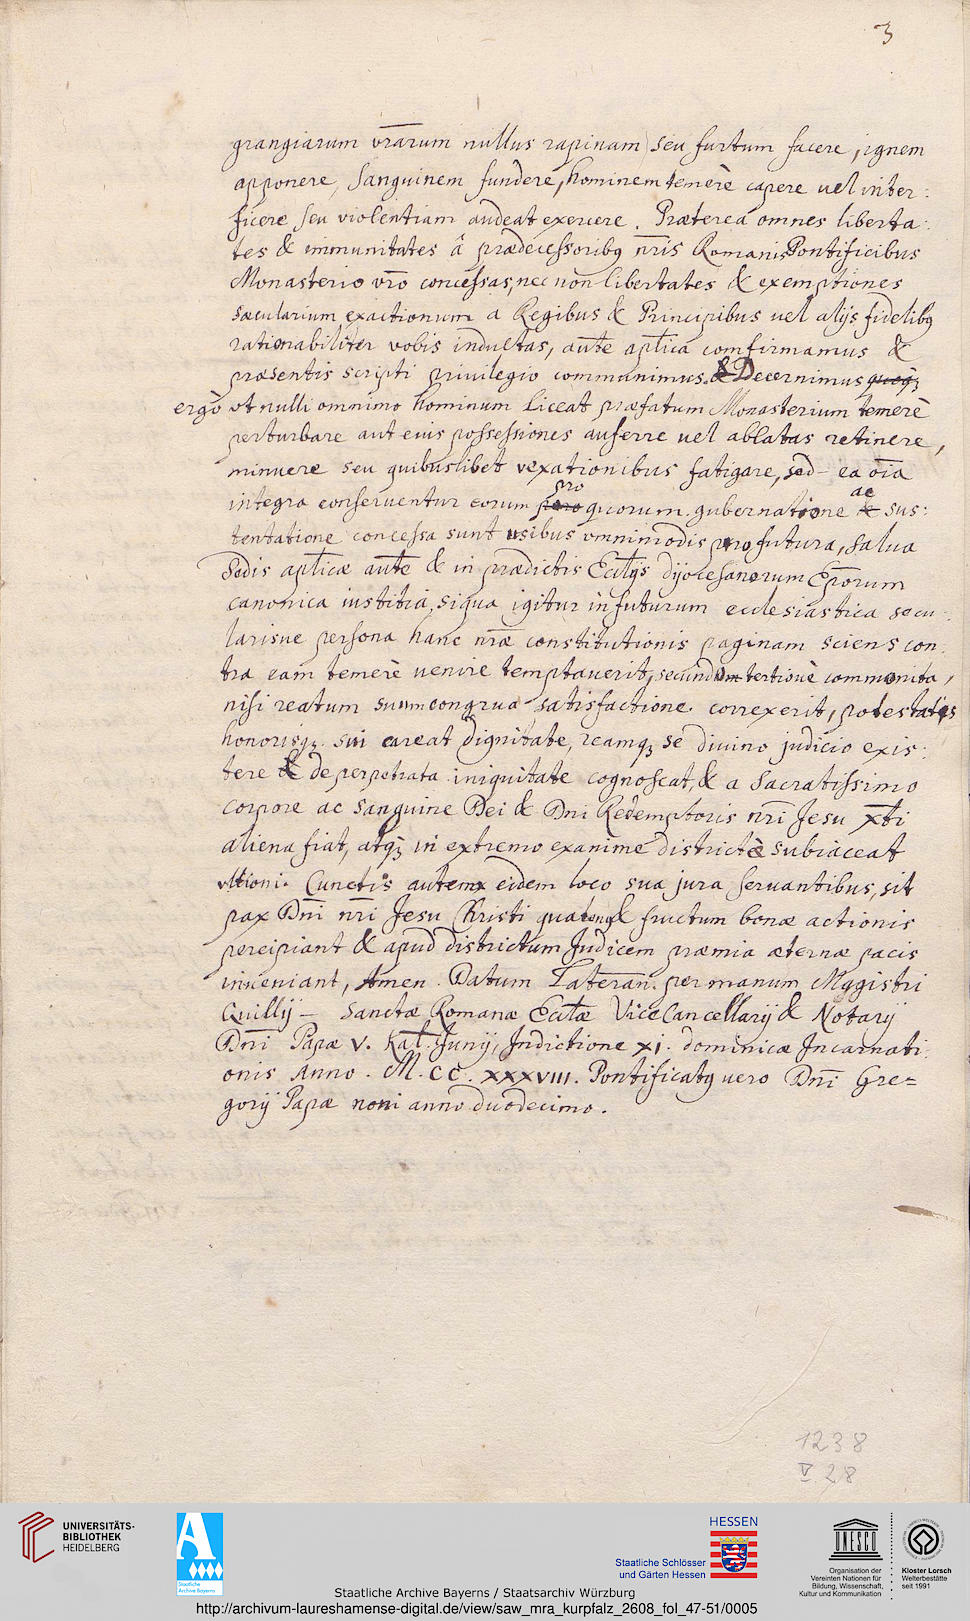 3
grangiarum vr̄arum nullus rapinam seu furtum facere, ignem
apponere, sanguinem fundere, hominem temerè capere uel inter:
ficere seu violentiam audeat exercere. Præterea omnes liberta:
tes & immunitates â prædecessoribꝫ nr̄is Romanis Pontificibus
Monasterio vr̄o concessas, nec non libertates & exemptiones
sæcularium exactionum a Regibus & Principibus uel alijs fidelibꝫ
rationabiliter vobis indultas, aūte ap̄tica comfirmamus &
præsentis scripti privilegio communimus. & Decernimus quoqꝫ
ergò vt nulli omnimo hominum liceat præfatum Monasterium temerè
perturbare aut euis possessiones auferre uel ablatas retinere,
minuere seu quibuslibet vexationibus fatigare, sed ea oīa
pro ac
integra conseruentur eorum quorum gubernatione & sus:
tentatione concessa sunt usibus omnimodis profutura, salua
Sedis ap̄ticæ aūte & in prædictis Ecc̄tijs dyocesanorum Ep̄orum
canonica iustitia, siqua igitur in futurum ecclesiastica secu:
larisue persona hanc nr̄æ constitutionis paginam sciens con:
tra eam temerè uenire temptauerit, secundo tertioue commonita,
nisi reatum suum congrua satisfactione correxerit, potestatis
honorisqꝫ sui careat dignitate, reamqꝫ se diuino judicio exis:
tere & de perpetrata iniquitate cognoscat, & a sacratissimo
corpore ac sanguine Dei & Dni Redemptoris nr̄i Jesu Xp̄ti
aliena fiat, atqꝫ in extremo examine districtè subiaceat
vltioni. Cunctis autem eidem loco sua jura seruantibus, sit
pax Dn̄i nr̄i Jesu Christi quatenꝫ & fructum bonæ actionis
percipiant & apud districtum Judicem præmia æternæ pacis
inueniant, Amen. Datum Lateran. per manum Magistri
Guillij – Sanctæ Romanæ Ecc̄tæ ViceCancellarij & Notarij
Dn̄i Papæ V. Kal. Junij, Indictione XI. dominicæ Incarnati:
onis Anno. M. CC. XXXVIII. Pontificatꝫ uero Dn̄i Gre=
gorij Papæ noni anno duodecimo.
1238
V 28
UNIVERSITÄTS-
BIBLIOTHEK
HEIDELBERG
Staatliche
Archive Bayerns
HESSEN
Staatliche Schlösser
und Gärten Hessen
UNESCO
Organisation der
Vereinten Nationen für
Bildung, Wissenschaft,
Kultur und Kommunikation
Kloster Lorsch
Welterbestätte
seit 1991
Staatliche Archive Bayerns / Staatsarchiv Würzburg
http://archivum-laureshamense-digital.de/view/saw_mra_kurpfalz_2608_fol_47-51/0005